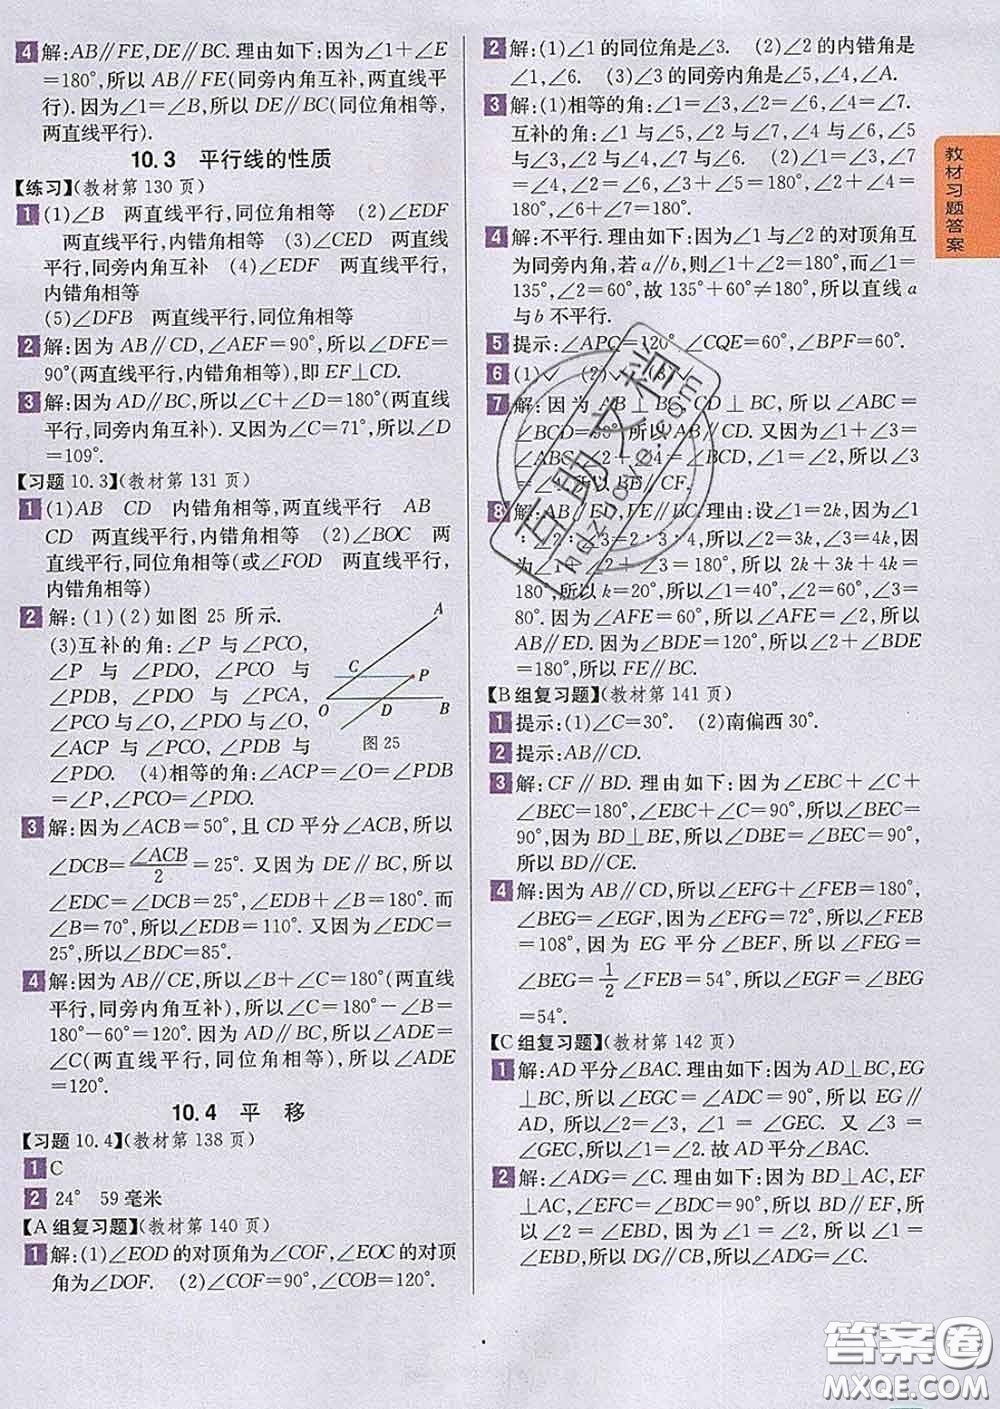 4 解:AB∥FE,DE∥BC. 理由如下:因为∠1+∠E
=180°,所以 AB∥FE(同旁内角互补,两直线平
行). 因为∠1=∠B,所以 DE∥BC(同位角相等,
两直线平行).
10.3 平行线的性质
【练习】(教材第 130 页)
1 (1)∠B 两直线平行,同位角相等 (2)∠EDF
两直线平行,内错角相等 (3)∠CED 两直线平
行,同旁内角互补 (4)∠EDF 两直线平行,
内错角相等
(5)∠DFB 两直线平行,同位角相等
2 解:因为 AB∥CD,∠AEF=90°,所以∠DFE=
90°(两直线平行,内错角相等),即 EF⊥CD.
3 解:因为 AD∥BC,所以∠C+∠D=180°(两直线
平行,同旁内角互补). 又因为∠C=71°,所以∠D
=109°.
【习题 10.3】(教材第 131 页)
1 (1)AB CD 内错角相等,两直线平行 AB
CD 两直线平行,内错角相等 (2)∠BOC 两
直线平行,同位角相等(或∠FOD 两直线平行,
内错角相等)
2 解:(1)(2)如图 25 所示.
(3)互补的角:∠P 与∠PCO,
∠P 与∠PDO,∠PCO 与
∠PDB,∠PDO 与∠PCA,
∠PCO与∠O,∠PDO与∠O,
∠ACP 与∠PCO,∠PDB 与
∠PDO. (4)相等的角:∠ACP=∠O=∠PDB
=∠P,∠PCO=∠PDO.
A
C
P
O
D
B
图 25
3 解:因为∠ACB=50°,且 CD 平分∠ACB,所以
∠DCB=∠ACB/2=25°. 又因为 DE∥BC,所以
∠EDC=∠DCB=25°,∠EDB+∠B=180°. 而
∠B=70°,所以∠EDB=110°. 又因为∠EDC=
25°,所以∠BDC=85°.
4 解:因为 AB∥CE,所以∠B+∠C=180°(两直线
平行,同旁内角互补),所以∠C=180°-∠B=
180°-60°=120°. 因为 AD∥BC,所以∠ADE=
∠C(两直线平行,同位角相等),所以∠ADE
=120°.
10.4 平 移
【习题 10.4】(教材第 138 页)
1 C
2 24° 59 毫米
【A 组复习题】(教材第 140 页)
1 解:(1)∠EOD 的对顶角为∠COF,∠EOC 的对顶
角为∠DOF. (2)∠COF=90°,∠COB=120°.
2 解:(1)∠1 的同位角是∠3. (2)∠2 的内错角是
∠1,∠6. (3)∠3 的同旁内角是∠5,∠4,∠A.
3 解:(1)相等的角:∠1=∠3=∠4=∠6=∠7.
互补的角:∠1 与∠5,∠1 与∠2,∠6 与∠5,∠6
与∠2,∠3 与∠5,∠3 与∠2,∠4 与∠5,∠4 与
∠2,∠7 与∠5,∠7 与∠2. (2)∠1=∠3,∠7=
∠4,∠2+∠6=180°,∠5+∠3=180°,∠5+∠4
=180°,∠6+∠7=180°.
4 解:不平行. 理由如下:因为∠1 与∠2 的对顶角互
为同旁内角,若 a∥b,则∠1+∠2=180°,而∠1=
135°,∠2=60°,故 135°+60°≠180°,所以直线 a
与 b 不平行.
5 提示:∠APQ=120°,∠CQE=60°,∠BPF=60°.
6 (1)✓ (2)✓ (3)✓
7 解:因为 AB⊥BC,CD⊥BC,所以∠ABC=
∠BCD=90°,所以 AB∥CD. 又因为∠1+∠3=
∠ABC,∠2+∠4=∠BCD,∠1=∠2,所以∠3=
∠4,所以 BE∥CF.
8 解:AB∥ED,FE∥BC. 理由:设∠1=2k,因为∠1
∶∠2∶∠3=2∶3∶4,所以∠2=3k,∠3=4k,
因为∠1+∠2+∠3=180°,所以 2k+3k+4k=
180°,所以 k=20°,所以∠1=40°,∠2=60°,∠3=
80°. 因为∠AFE=60°,所以∠AFE=∠2,所以
AB∥ED. 因为∠BDE=120°,所以∠2+∠BDE
=180°,所以 FE∥BC.
【B 组复习题】(教材第 141 页)
1 提示:(1)∠C=30°. (2)南偏西 30°.
2 提示:AB∥CD.
3 解:CF∥BD. 理由如下:因为∠EBC+∠C+
∠BEC=180°,∠EBC+∠C=90°,所以∠BEC=
90°. 因为 BD⊥BE,所以∠DBE=∠BEC=90°,
所以 BD∥CE.
4 解:因为 AB∥CD,所以∠EFG+∠FEB=180°,
∠BEG=∠EGF,因为∠EFG=72°,所以∠FEB
=108°,因为 EG 平分∠BEF,所以∠FEG=
∠BEG=1/2∠FEB=54°,所以∠EGF=∠BEG
=54°.
【C 组复习题】(教材第 142 页)
1 解:AD 平分∠BAC. 理由如下:因为 AD⊥BC,EG
⊥BC,所以∠EGC=∠ADC=90°,所以 EG∥
AD,所以∠3=∠1,∠2=∠GEC. 又∠3=
∠GEC,所以∠1=∠2. 故 AD 平分∠BAC.
2 解:∠ADG=∠C. 理由如下:因为 BD⊥AC,EF
⊥AC,∠EFC=∠BDC=90°,所以 BD∥EF,所
以∠2=∠EBD,因为∠1=∠2,所以∠1=
∠EBD,所以 DG∥CB,所以∠ADG=∠C.
教材习题答案
互助文档
hdzuoye.com
答案圈
MXQE.COM